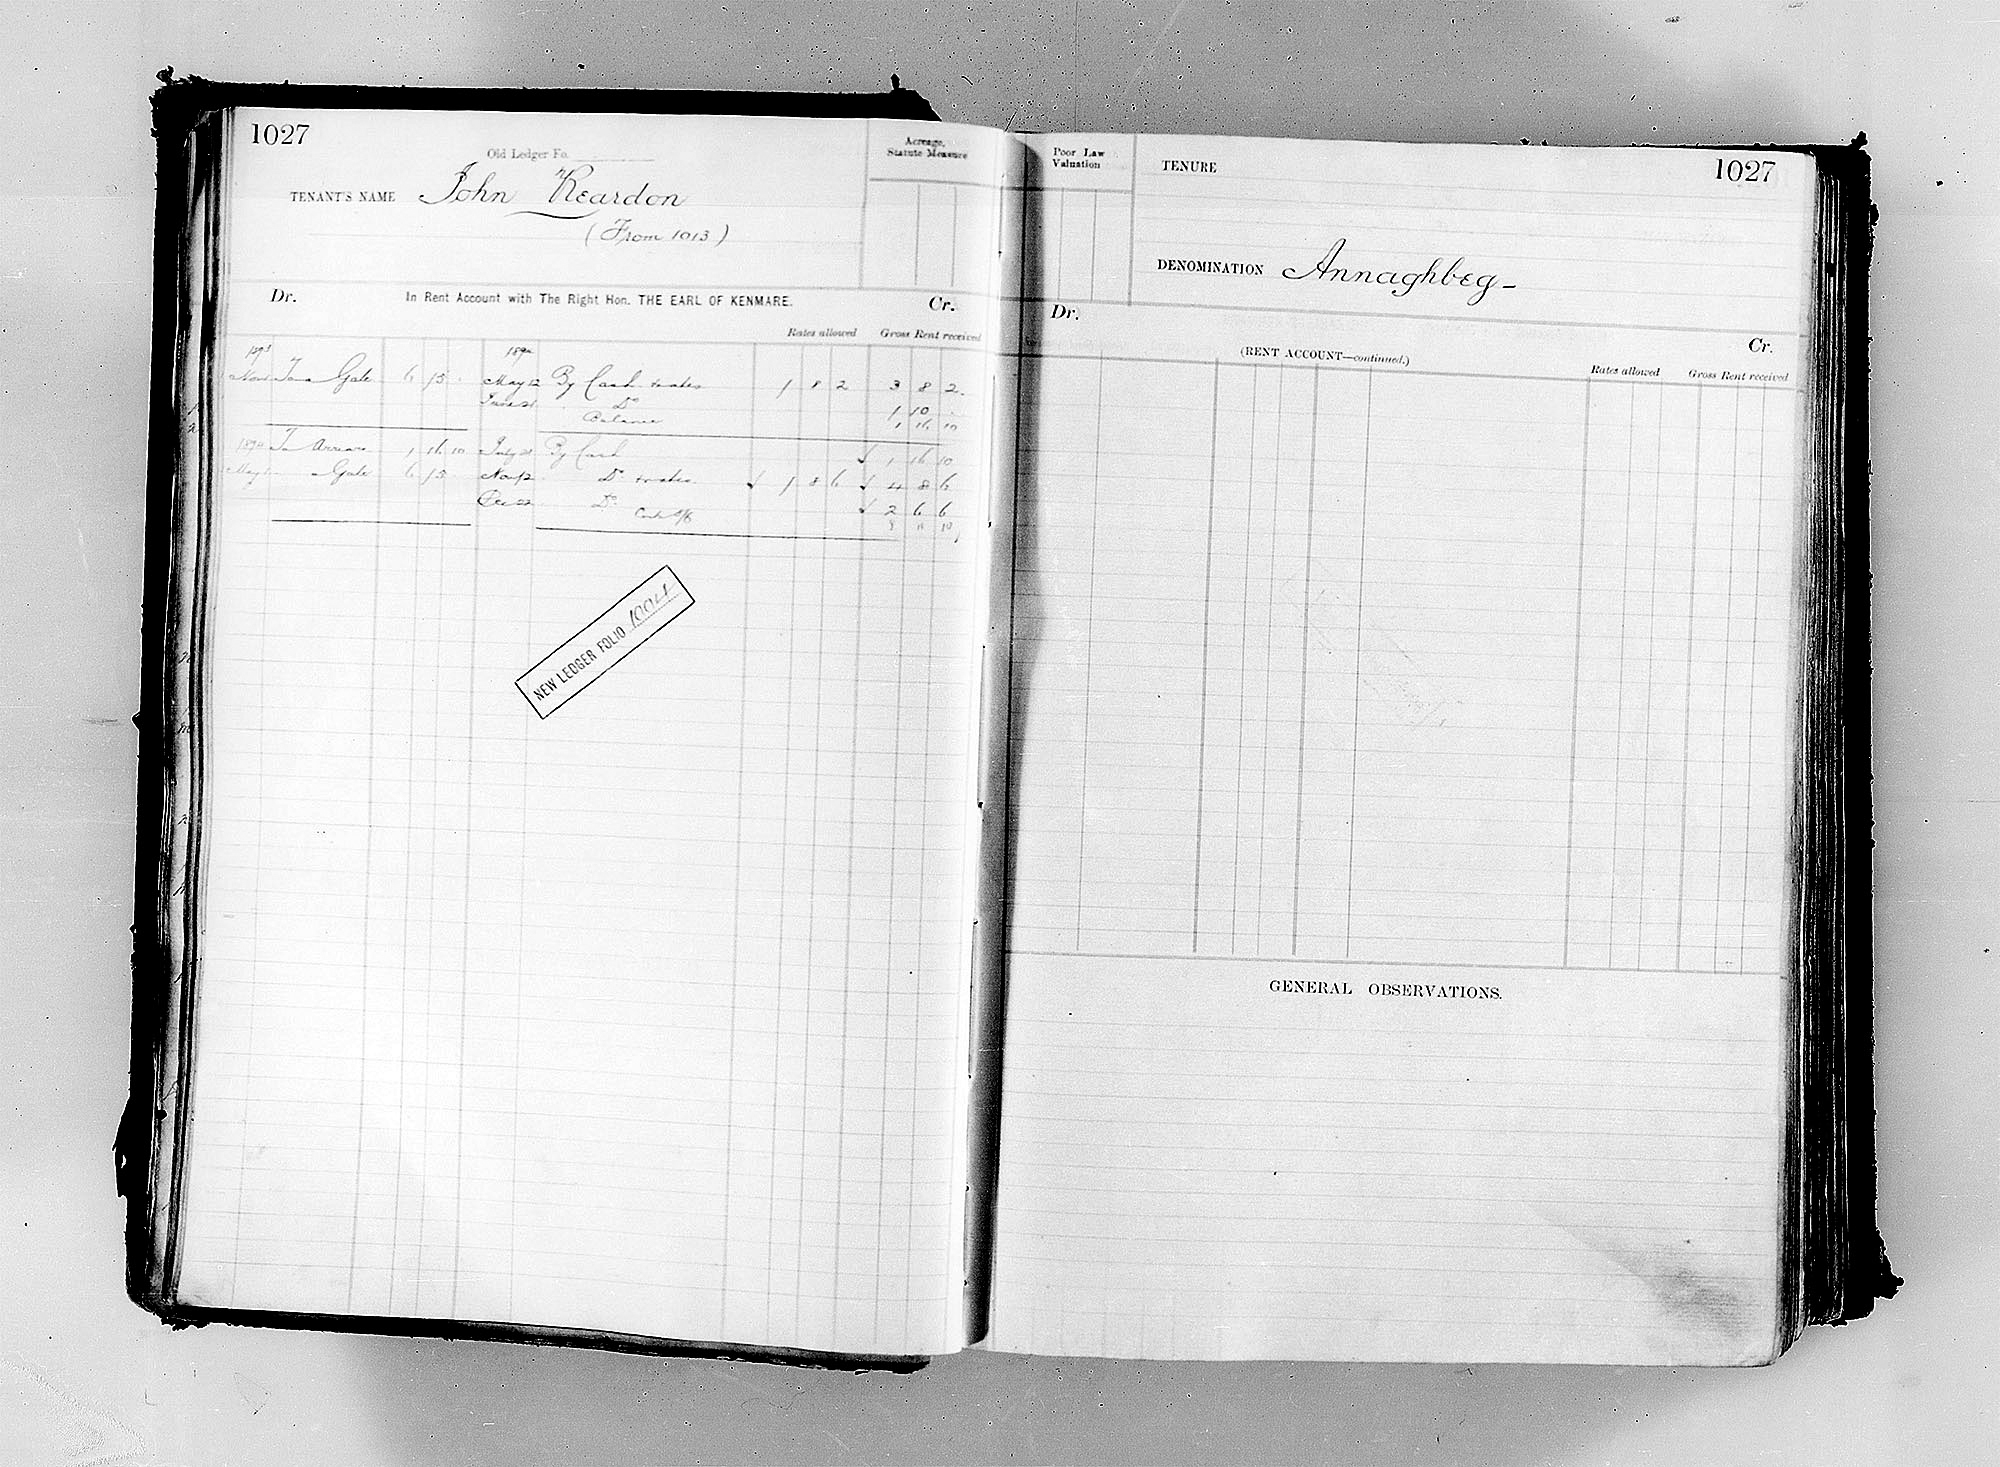 1027
Old Ledger Fo.
Acreage,
Statute Measure
TENANT'S NAME John Reardon
(From 1013)
Dr. In Rent Account with The Right Hon. THE EARL OF KENMARE. Cr.
Rates allowed Gross Rent received
1893 1894
Gale 6 15 May 12 By Cash 1 8 2 3 8 2
June 21 Do 1 10
Balance 1 16 10
1894 To Arrears 1 16 10 July 21 By Cash 1 16 10
May Gale 6 15 Nov 12 Do 1 8 6 4 8 6
Dec 22 Do 2 6 6
NEW LEDGER FOLIO 1004
Poor Law
Valuation
TENURE
1027
DENOMINATION Annaghbeg
Dr.
(RENT ACCOUNT—continued.)
Cr.
Rates allowed Gross Rent received
GENERAL OBSERVATIONS.